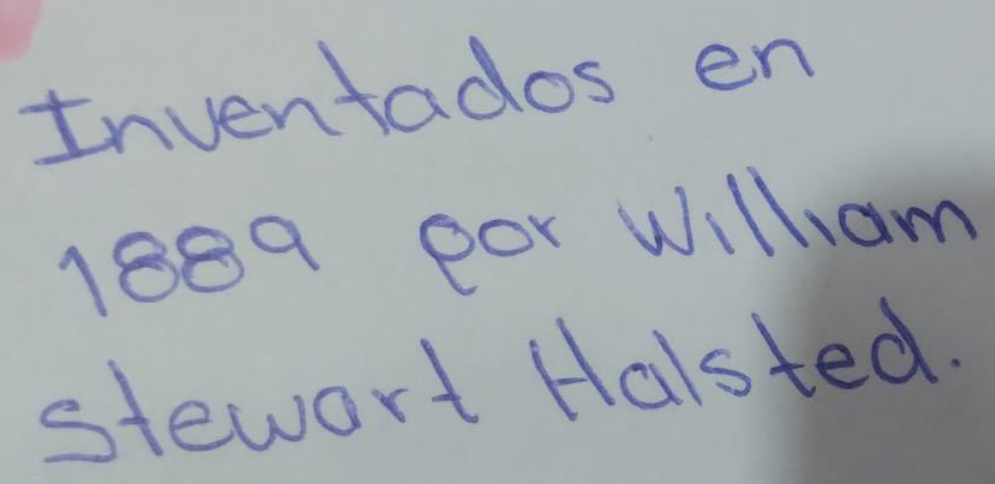 Inventados en
1889 por William
Stewart Halsted.